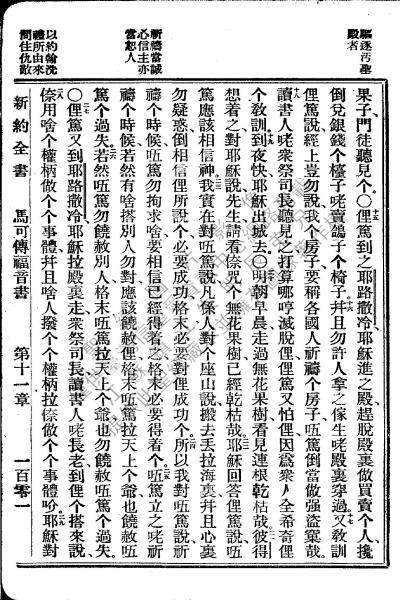 驅逐汚聖
殿者
祈禱當誠
心信主亦
當恕人
以約翰洗
禮所由來
問住仇敵
果子、門徒聽見个○俚篤到之耶路撒冷、耶穌進之殿、趕脫殿裏做買賣个人、攙
倒兌銀錢个檯子、咾賣鴿子个椅子、并且勿許人拿之傢生咾殿裏穿過、又敎訓
俚篤說、經上豈勿說我个房子要稱各國人祈禱个房子、唔篤倒當做强盜窠哉、
讀書人咾衆祭司長聽見之、打算哪哼滅脫俚、俚篤又怕俚、因爲衆人全希奇俚
个敎訓、到夜快、耶穌出城去○明朝早晨走過、無花果樹看見連根乾枯哉、彼得
想着之、對耶穌說、先生請看、倷咒个無花果樹已經乾枯哉、耶穌回答俚篤說、唔
篤應該相信神、我實在對唔篤說、凡係人對个座山說、搬去丟拉海裏、并且心裏
勿疑惑、倒相信俚所說个必要成功、格末必要對俚成功个、所以我對唔篤說、祈
禱个時候、唔篤勿拘求啥、要相信已經得着之、格末必要得着个、唔篤立之咾祈
禱个時候、若然有啥搭別人勿對、應該饒赦俚、格末唔篤拉天上个爺、也饒赦唔
篤个過失、若然唔篤勿饒赦別人、格末唔篤拉天上个爺、也勿饒赦唔篤个過失、
○俚篤又到耶路撒冷、耶穌拉殿裏走、衆祭司長讀書人咾長老、到俚个搭來說、
倷用啥个權柄做个个事體、并且啥人撥个个權柄拉倷做个个事體吩、耶穌對
新約全書 馬可傳福音書 第十一章 一百零一